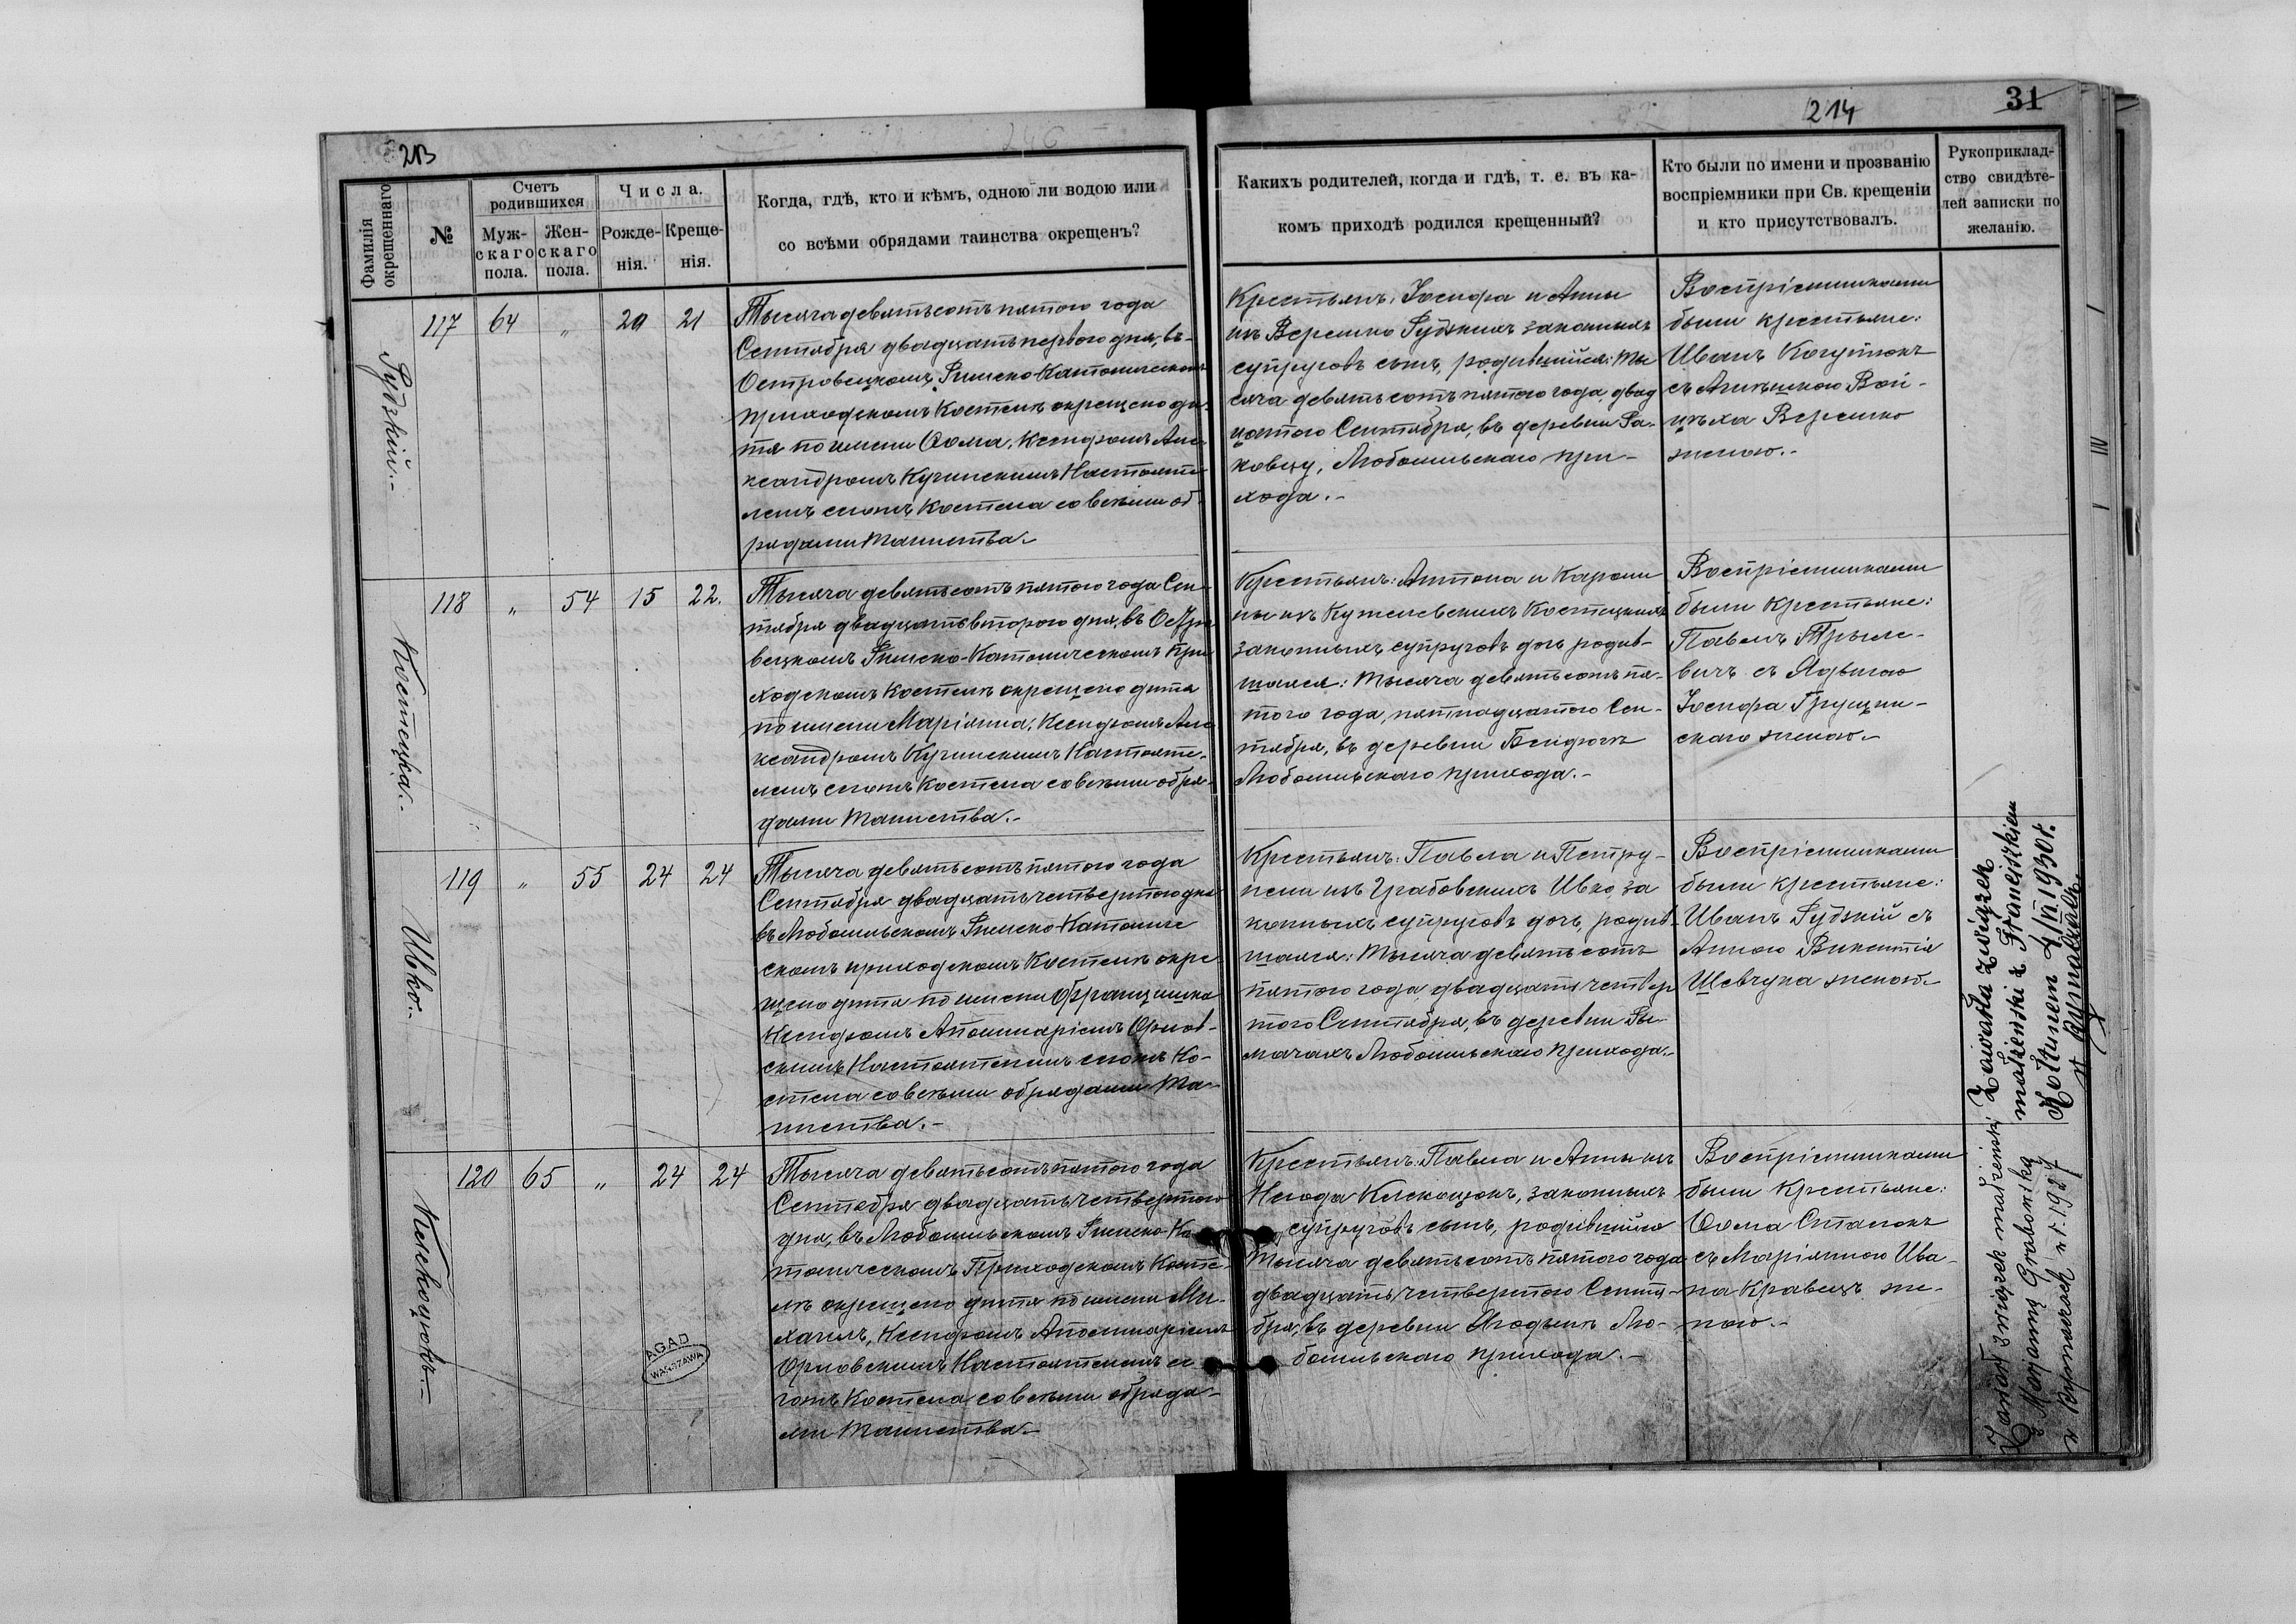 213
246
214
31
Фамилія окрещеннаго
№
Счетъ родившихся
Муж-скаго пола.
Жен-скаго пола.
Числа.
Рожде-нія.
Креще-нія.
Когда, гдѣ, кто и кѣмъ, одною ли водою или
со всѣми обрядами таинства окрещенъ?
Какихъ родителей, когда и гдѣ, т. е. въ ка-
комъ приходѣ родился крещенный?
Кто были по имени и прозванію
воспріемники при Св. крещеніи
и кто присутствовалъ.
Рукоприклад-
ство свидѣте-
лей записки по
желанію.
Рудзкій.-
117 64 " 20 21
Тысяча девятьсотъ пятого года
Сентября двадцать перваго дня, въ
Островецкомъ Римско-Католическомъ
приходскомъ Костелѣ окрещено ди-
тя по имени Ѳома, Ксендзомъ Але-
ксандромъ Кучинскимъ Настояте-
лемъ сего Костела со всѣми об-
рядами Таинства.-
Крестьянъ: Іосифа и Анны
изъ Верешко Рудзкихъ законныхъ
супруговъ сынъ, родившійся: Ты
сяча девятьсотъ пятого года, двад
цатого Сентября, въ деревни Ра-
ковцу, Любомльскаго при-
хода.-
Воспріемниками
были крестьяне:
Иванъ Когутюкъ
съ Агнѣшкою Вой-
цѣха Верешко
женою.-
Костецка.-
118 " 54 15 22.
Тысяча девятьсотъ пятого года Сен-
тября двадцать второго дня, въ Остро-
вецкомъ Римско-Католическомъ При
ходскомъ Костелѣ окрещено дитя
по имени Маріянна, Ксендзомъ Але
ксандромъ Кучинскимъ Настояте-
лемъ сего Костела со всѣми обря-
дами Таинства.-
Крестьянъ: Антона и Кароли
ны изъ Кужелевскихъ Костецкихъ
законныхъ супруговъ дочь родив-
шаяся: Тысяча девятьсотъ пя-
того года, пятнадцатого Сен-
тября, въ деревни Бендюгѣ
Любомльскаго прихода.-
Воспріемниками
были Крестьяне:
Павелъ
съ Ядвигою
Іосифа
скаго женою.-
Ивко.-
119 " 55 24 24
Тысяча девятьсотъ пятого года
Сентября двадцать четвертого дня
въ Любомльскомъ Римско-Католиче
скомъ приходскомъ Костелѣ окре
щено дитя по имени Францишка
Ксендзомъ Аполинаріемъ Орлов-
скимъ Настоятелемъ сего Ко-
стела со всѣми обрядами Та-
инства.-
Крестьянъ: Павла и Петру-
нели изъ Грабовскихъ Ивко, за
конныхъ супруговъ дочь, родив-
шаяся: Тысяча девятьсотъ
пятого года двадцать четвер
того Сентября, въ деревни Ры-
мачахъ Любомльскаго прихода.-
Воспріемниками
были крестьяне:
Иванъ Рудзкій съ
Анною Викентія
Шевчука женою.-
Клекоцюкъ.-
120 65 " 24 24
Тысяча девятьсотъ пятого года
Сентября двадцать четвертого
дня, въ Любомльскомъ Римско-Ка
толическомъ Приходскомъ Косте-
лѣ окрещено дитя по имени Ми-
хаилъ, Ксендзомъ Аполинаріемъ
Орловскимъ Настоятелемъ се
гожъ Костела со всѣми обряда-
ми Таинства.-
Крестьянъ: Павла и Анны изъ
Клекоцюкъ, законныхъ
супруговъ сынъ, родившійся
Тысяча девятьсотъ пятого года
двадцать четвертого Сентя-
бря, въ деревни Ягодинѣ Лю-
бомльскаго прихода.-
Воспріемниками
были Крестьяне:
Ѳома Сталюкъ
съ Маріянною Ива-
на Кравецъ же-
ною.-
Zawarła związek
małżeński z Franciszkiem
Kołtunem 4/II 1930 r.
w Rymaczach.
Zawarł związek małżeński
z Marjanną Grabowską
w Rymaczach r. 1927
AGAD
WARSZAWA